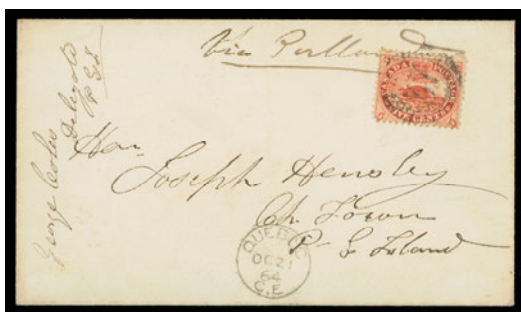 Via Portland
George Coles
Delegate
P E I
Hon
Joseph Hensley
Ch Town
P. E Island
QUEBEC
OC 21
64
C.E